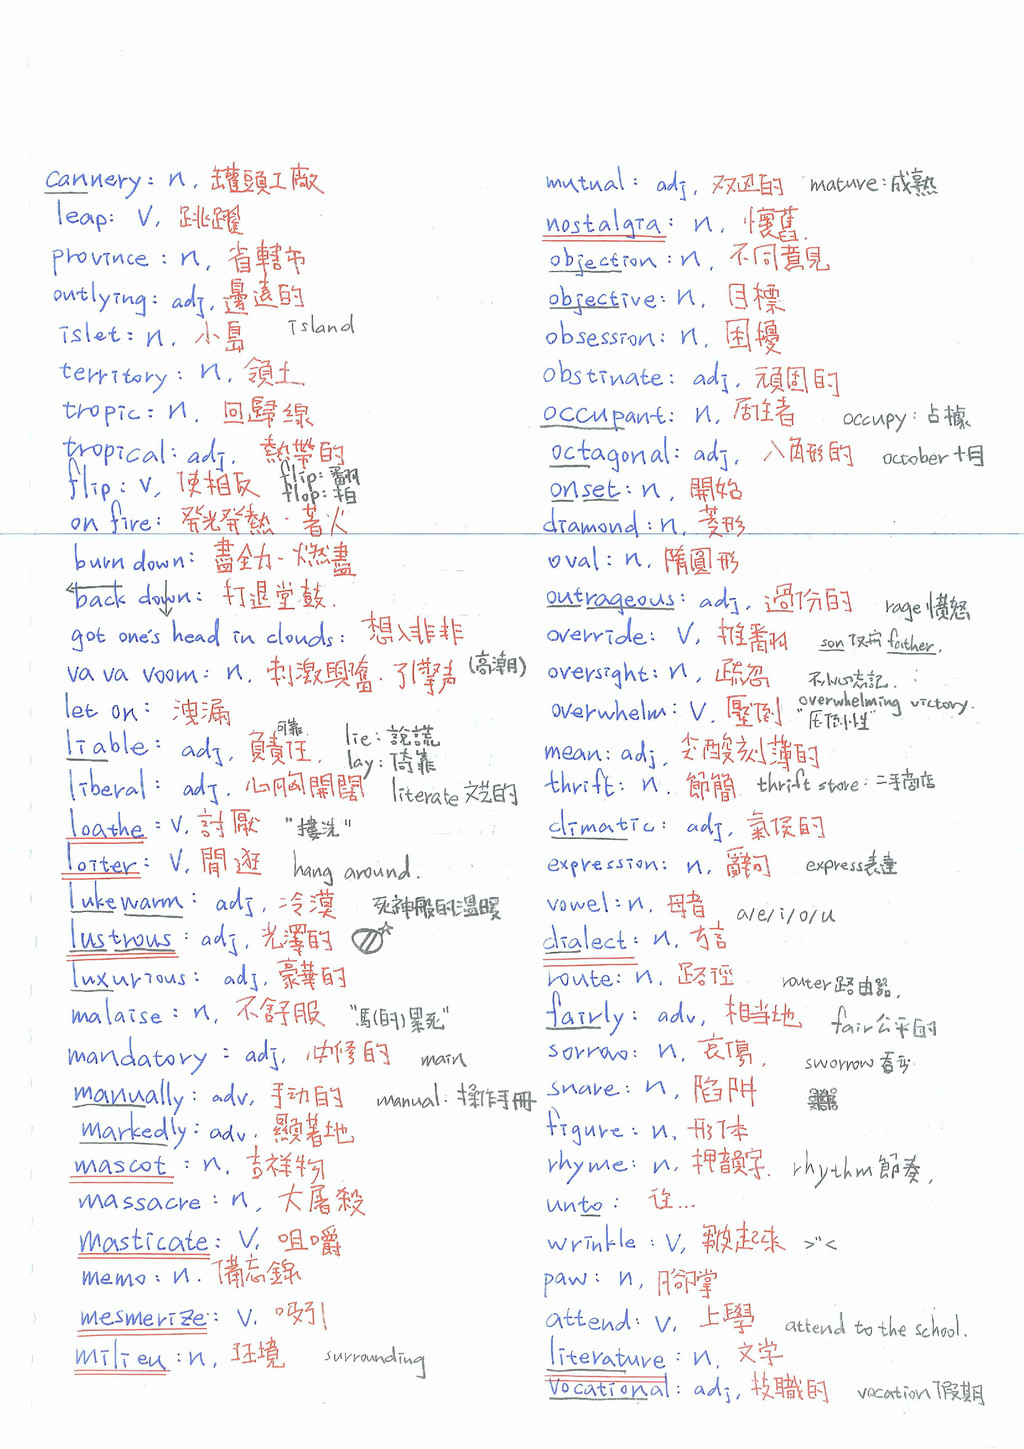 cannery: n. 罐頭工廠
leap: V. 跳躍
province: n. 省轄市
outlying: adj. 邊遠的
islet: n. 小島 island
territory: n. 領土
tropic: n. 回歸線
tropical: adj. 熱帶的
flip: v. 使相反 flip: 翻 flop: 拍
on fire: 發光發熱．著火
burn down: 盡全力．燃盡
back down: 打退堂鼓.
got one's head in clouds: 想入非非
va va voom: n. 刺激興奮．引擎声 (高潮)
let on: 洩漏
liable: adj. 負責任. 可靠 lie: 說謊 lay: 倚靠
liberal: adj. 心胸開闊 literate 文芸的
loathe: v. 討厭 "摟洗"
loiter: V. 閒逛 hang around.
lukewarm: adj. 冷漠 死神殿的溫暖
lustrous: adj. 光澤的
luxurious: adj. 豪華的
malaise: n. 不舒服 "馬(的)累死"
mandatory: adj. 必修的 main
manually: adv. 手动的 manual: 操作手冊
markedly: adv. 顯著地
mascot: n. 吉祥物
massacre: n. 大屠殺
masticate: V. 咀嚼
memo: n. 備忘錄
mesmerize: V. 吸引
milieu: n. 环境 surrounding
mutual: adj. 双边的 mature: 成熟
nostalgia: n. 懷舊.
objection: n. 不同意見
objective: n. 目標
obsession: n. 困擾
obstinate: adj. 頑固的
occupant: n. 居住者 occupy: 占據
octagonal: adj. 八角形的 october 十月
onset: n. 開始
diamond: n. 菱形
oval: n. 隋圓形
outrageous: adj. 過份的 rage 憤怒
override: V. 推翻 son 推翻 father.
oversight: n. 疏忽 不小心忘記.
overwhelm: V. 壓倒 overwhelming victory. "压倒性"
mean: adj. 尖酸刻薄的
thrift: n. 節簡 thrift store: 二手商店
climatic: adj. 氣侯的
expression: n. 辭句 express 表達
vowel: n. 母音 a/e/i/o/u
dialect: n. 方言
route: n. 路徑 router 路由器.
fairly: adv. 相当地 fair 公平的
sorrow: n. 哀傷. sworrow 吞
snare: n. 陷阱
figure: n. 形体
rhyme: n. 押韻字. rhythm 節奏.
unto: 往...
wrinkle: V. 皺起來 >"<
paw: n. 腳掌
attend: v. 上學 attend to the school.
literature: n. 文学
vocational: adj. 技職的 vacation 假期